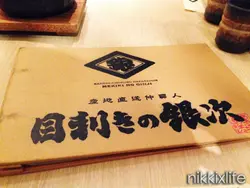 産地直送仲買人
目利きの銀次
nikkixlife